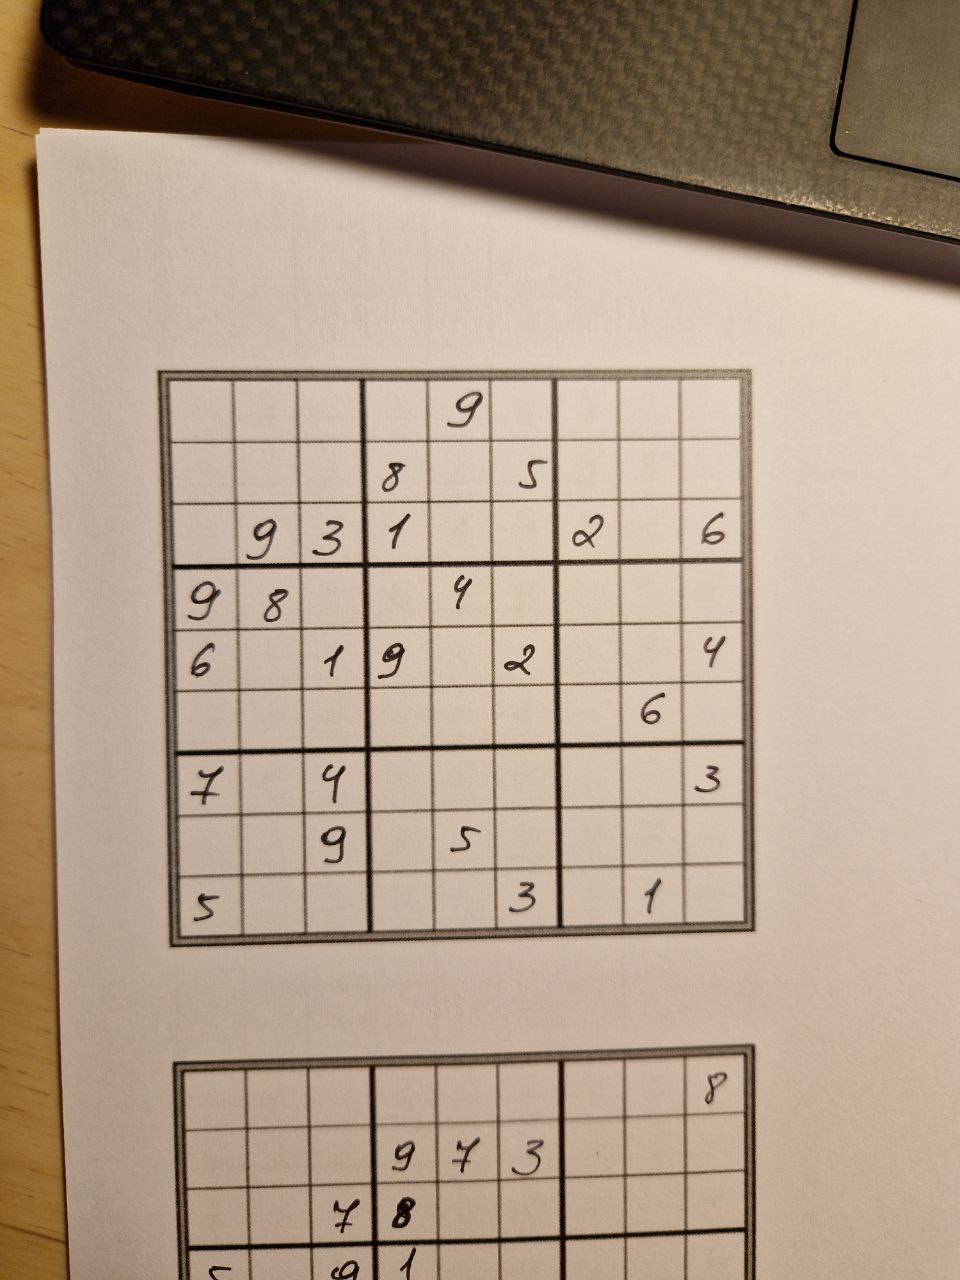 9
8 5
9 3 1 2 6
9 8 4
6 1 9 2 4
6
7 4 3
9 5
5 3 1
8
9 7 3
7 8
5 9 1